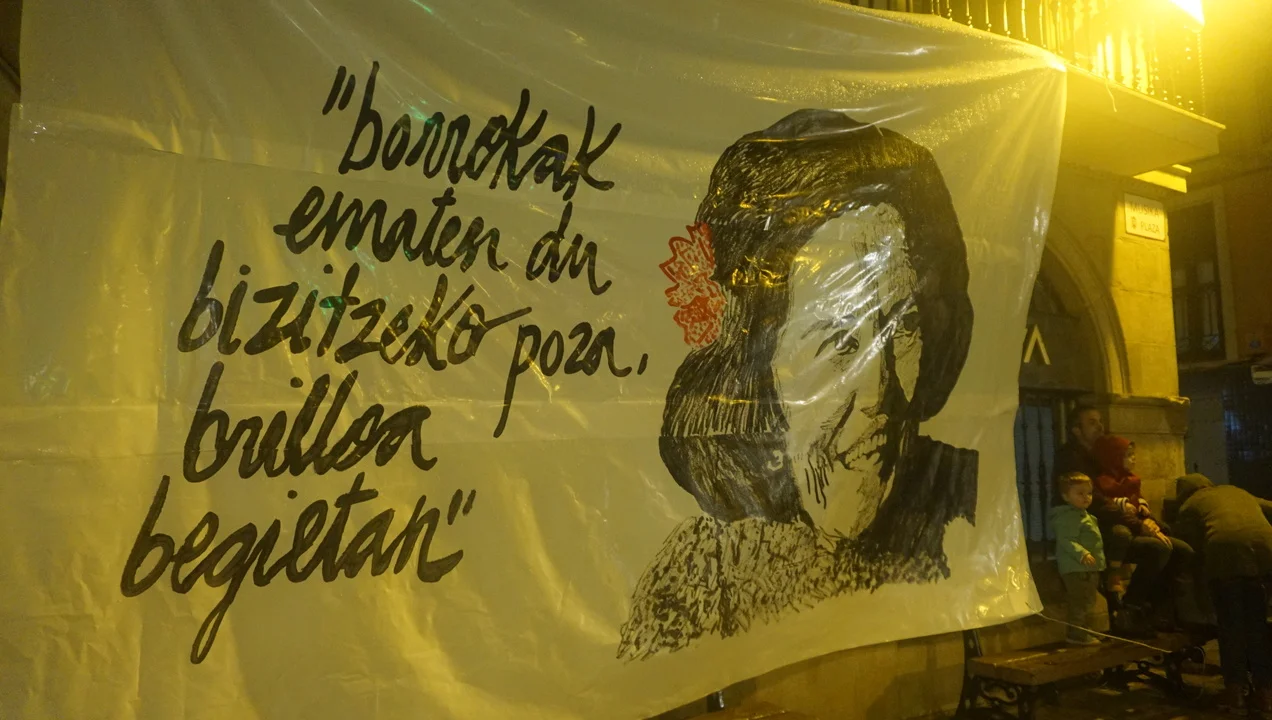 "borrokak
ematen du
bizitzeko poza,
brilloa
begietan"
PLAZA